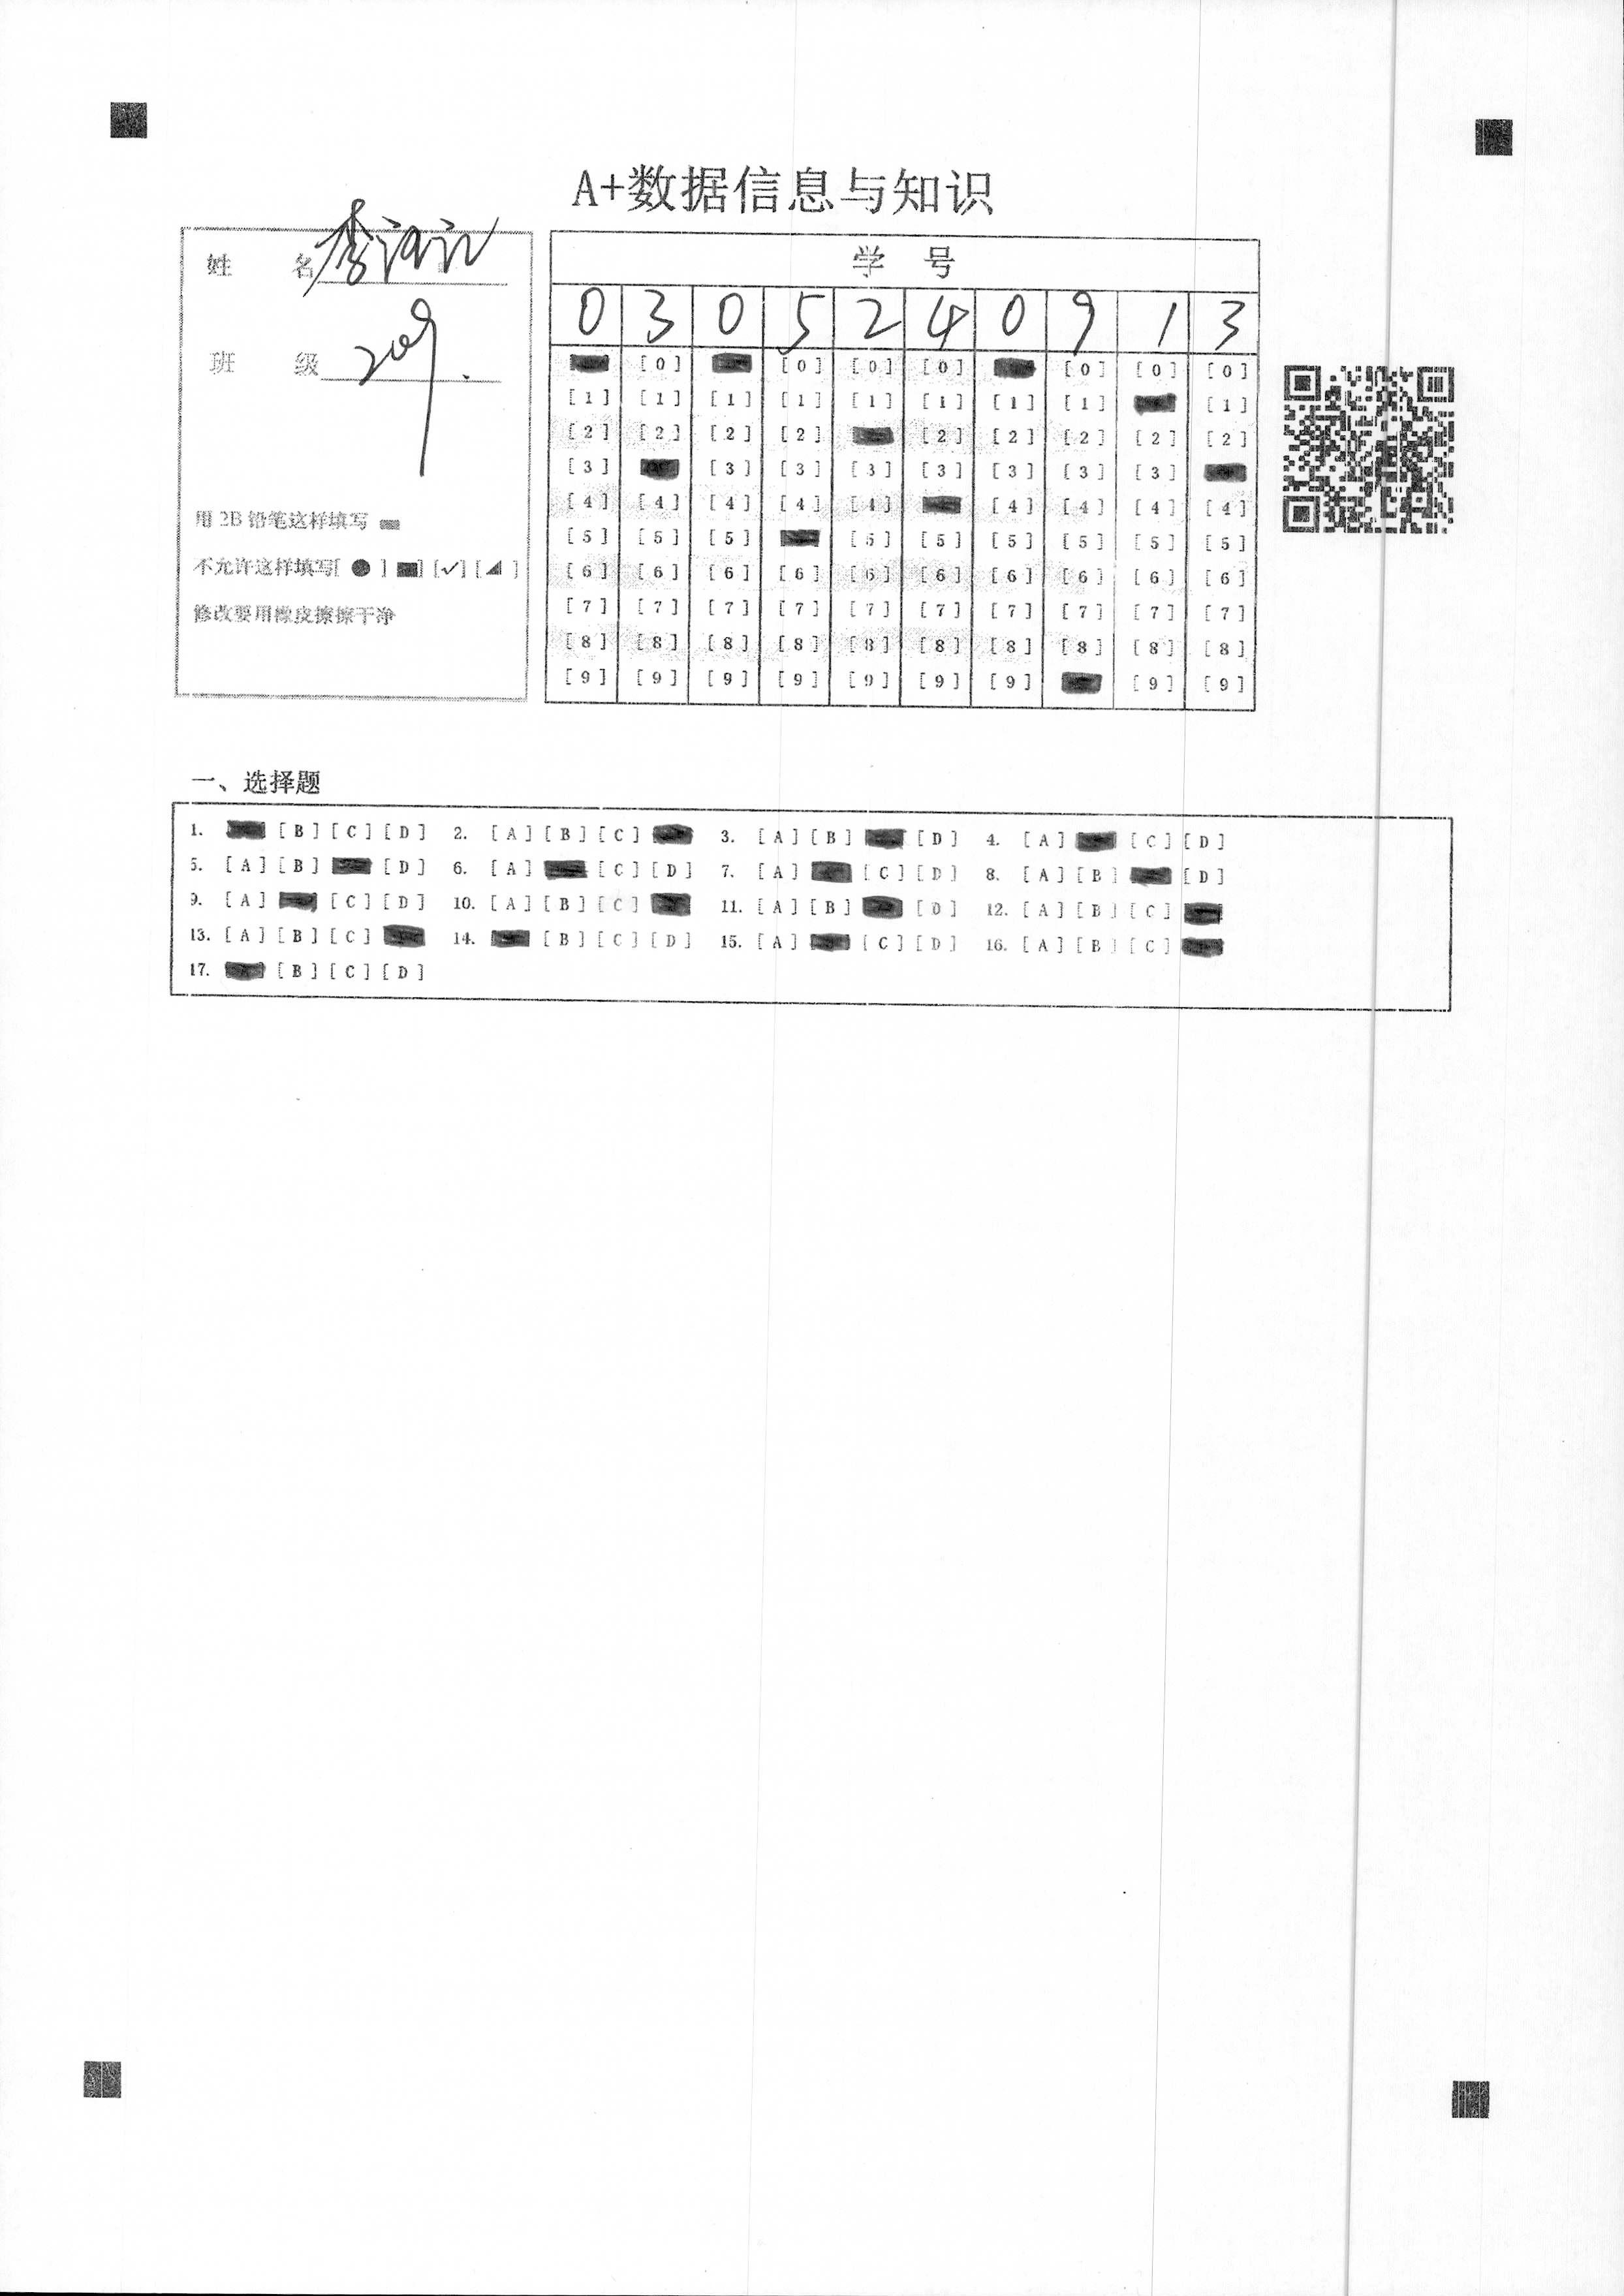 A+数据信息与知识
姓 名 李
班 级 209
用 2B 铅笔这样填写
不允许这样填写[ ● ] [■] [✓] [◢ ]
修改要用橡皮擦擦干净
学 号
0 3 0 5 2 4 0 9 1 3
[0] [0] [0] [0] [0] [0] [0]
[1] [1] [1] [1] [1] [1] [1] [1] [1]
[2] [2] [2] [2] [2] [2] [2] [2] [2]
[3] [3] [3] [3] [3] [3] [3] [3]
[4] [4] [4] [4] [4] [4] [4] [4] [4]
[5] [5] [5] [5] [5] [5] [5] [5] [5]
[6] [6] [6] [6] [6] [6] [6] [6] [6] [6]
[7] [7] [7] [7] [7] [7] [7] [7] [7] [7]
[8] [8] [8] [8] [8] [8] [8] [8] [8] [8]
[9] [9] [9] [9] [9] [9] [9] [9] [9]
一、选择题
1. [B] [C] [D] 2. [A] [B] [C] 3. [A] [B] [D] 4. [A] [C] [D]
5. [A] [B] [D] 6. [A] [C] [D] 7. [A] [C] [D] 8. [A] [B] [D]
9. [A] [C] [D] 10. [A] [B] [C] 11. [A] [B] [D] 12. [A] [B] [C]
13. [A] [B] [C] 14. [B] [C] [D] 15. [A] [C] [D] 16. [A] [B] [C]
17. [B] [C] [D]